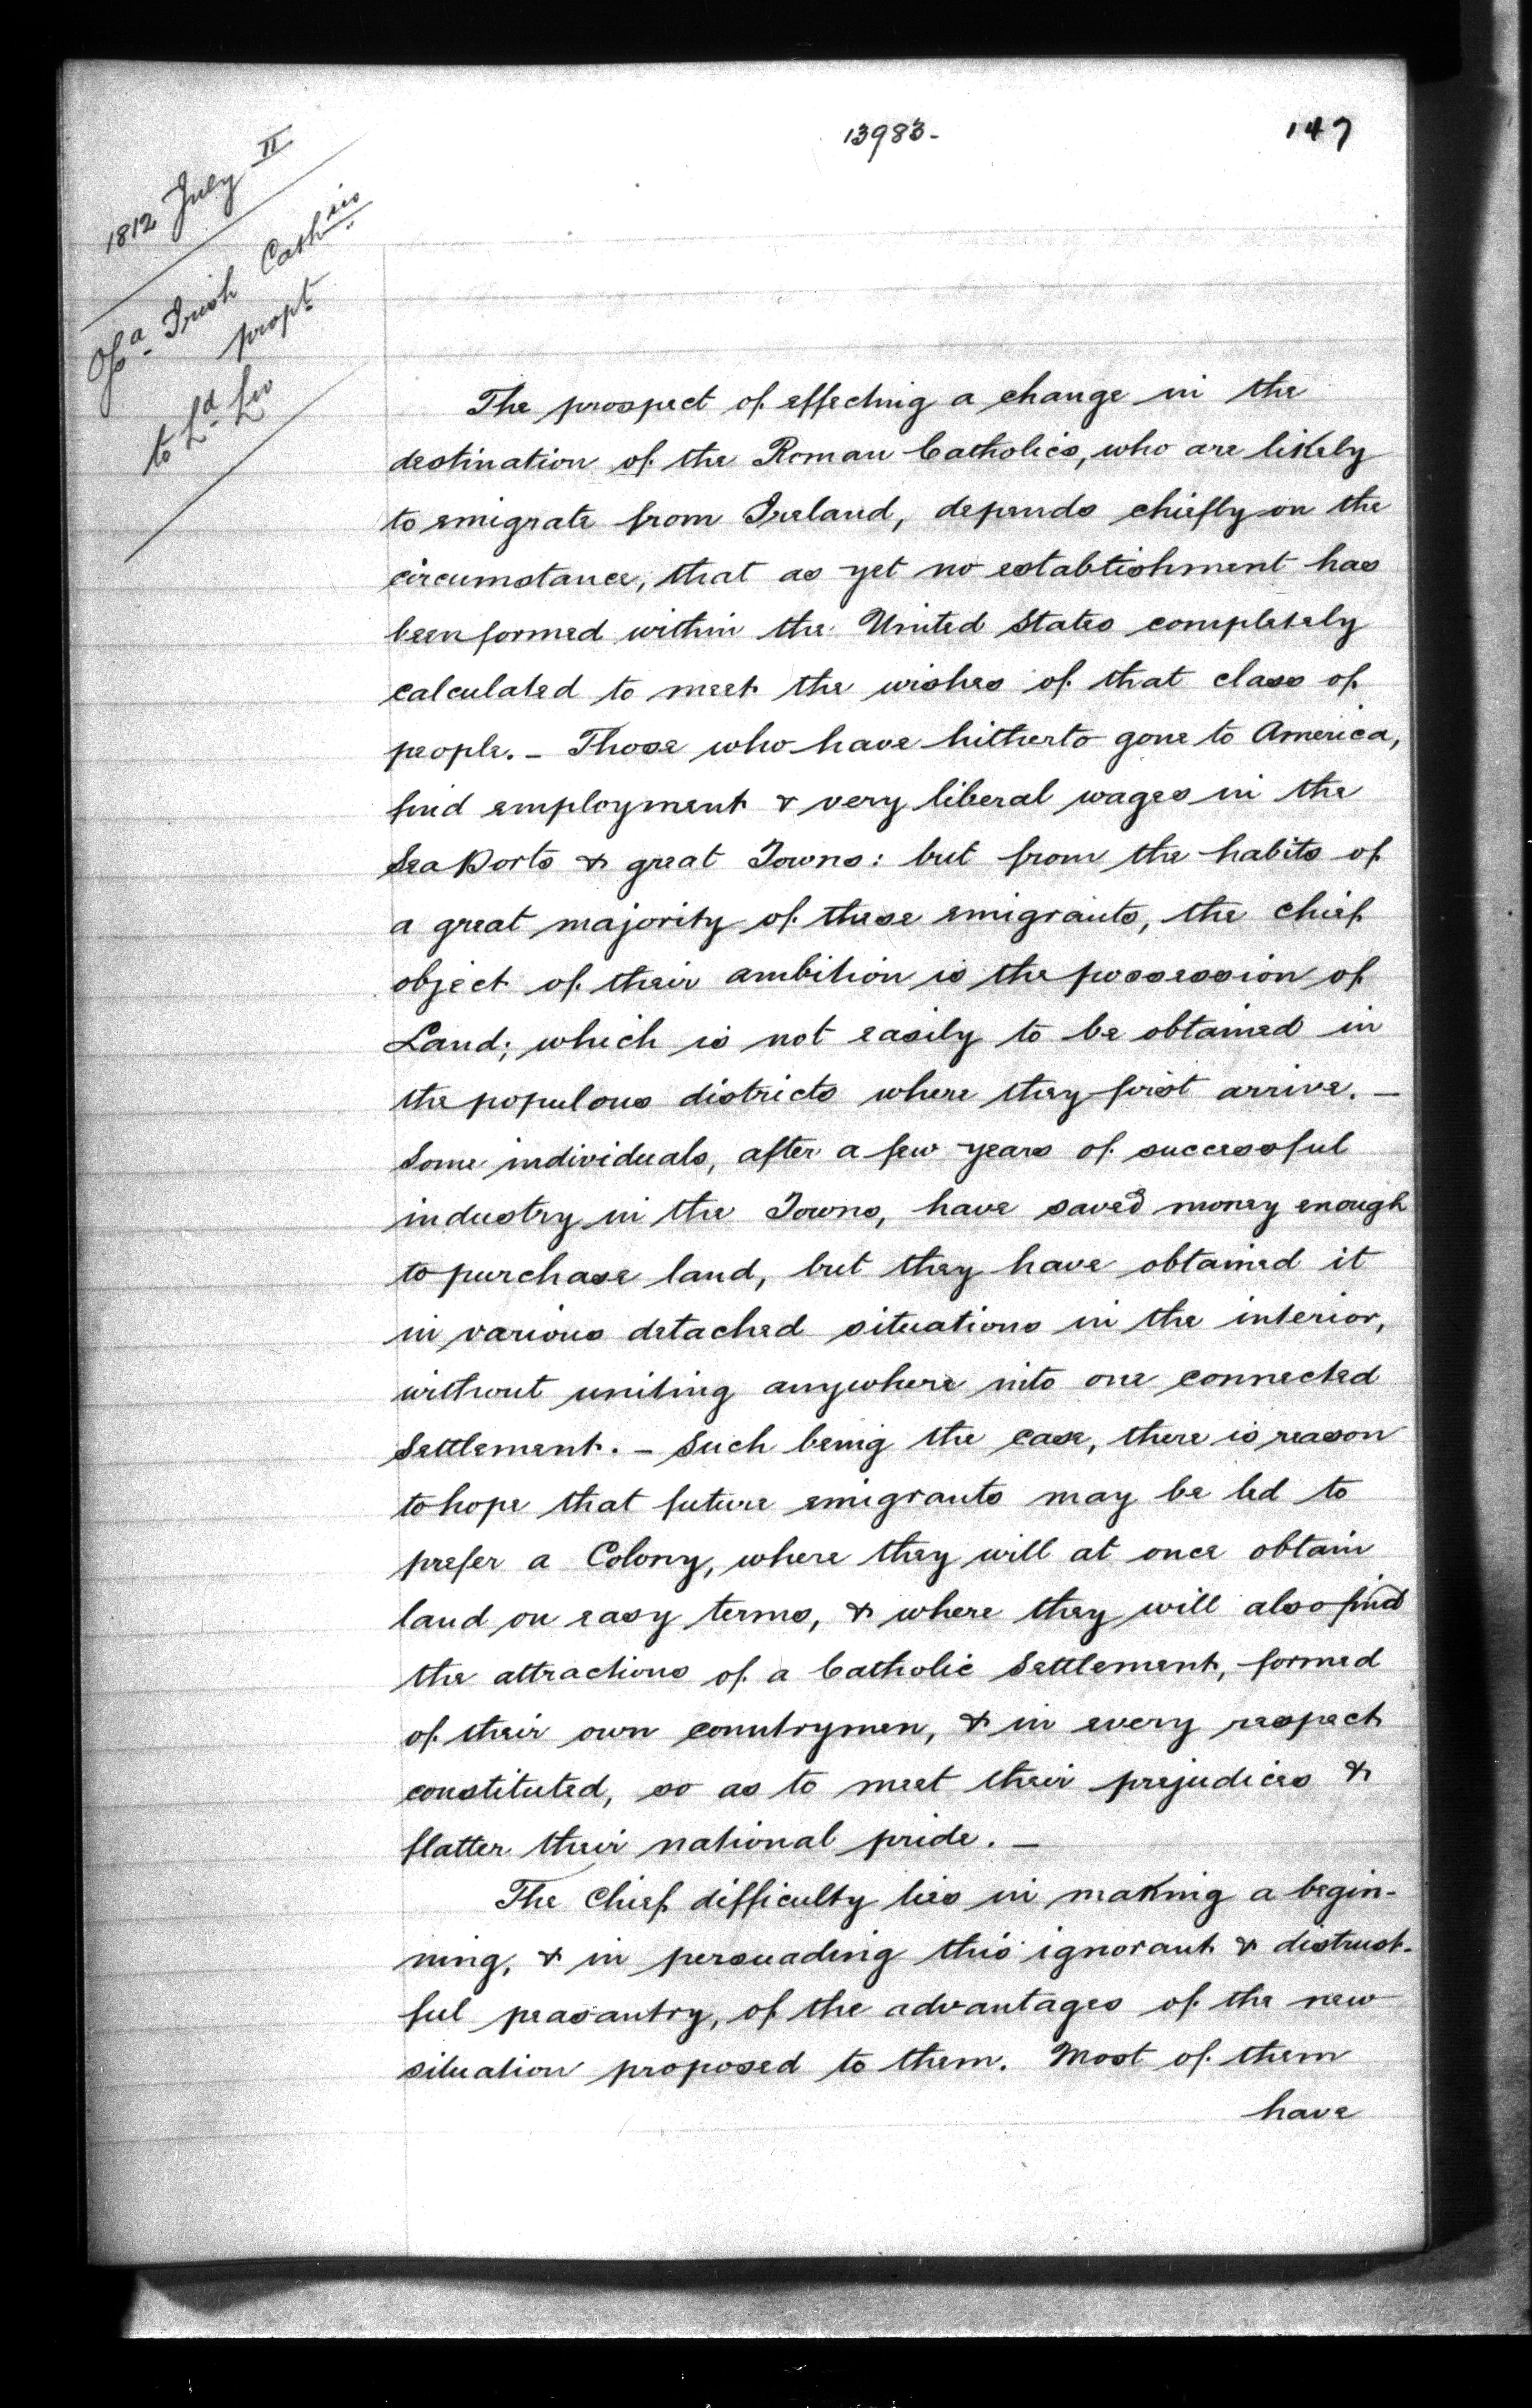 13983-
147
1812 July II
Of a Irish Cath
sic
propt
to Ld
The prospect of effecting a change in the
destination of the Roman Catholics, who are likely
to emigrate from Ireland, depends chiefly on the
circumstance, that as yet no establishment has
been formed within the United States completely
calculated to meet the wishes of that class of
people. – Those who have hitherto gone to America,
find employment & very liberal wages in the
Sea Ports & great Towns: but from the habits of
a great majority of these emigrants, the chief
object of their ambition is the possession of
Land; which is not easily to be obtained in
the populous districts where they first arrive. –
Some individuals, after a few years of successful
industry in the Towns, have saved money enough
to purchase land, but they have obtained it
in various detached situations in the interior,
without uniting anywhere into one connected
Settlement. – Such being the case, there is reason
to hope that future emigrants may be led to
prefer a Colony, where they will at once obtain
land on easy terms, & where they will also find
the attractions of a Catholic Settlement, formed
of their own countrymen, & in every respect
constituted, so as to meet their prejudices &
flatter their national pride. –
The Chief difficulty lies in making a begin-
ning, & in persuading this ignorant & distrust-
ful peasantry, of the advantages of the new
situation proposed to them. Most of them
have